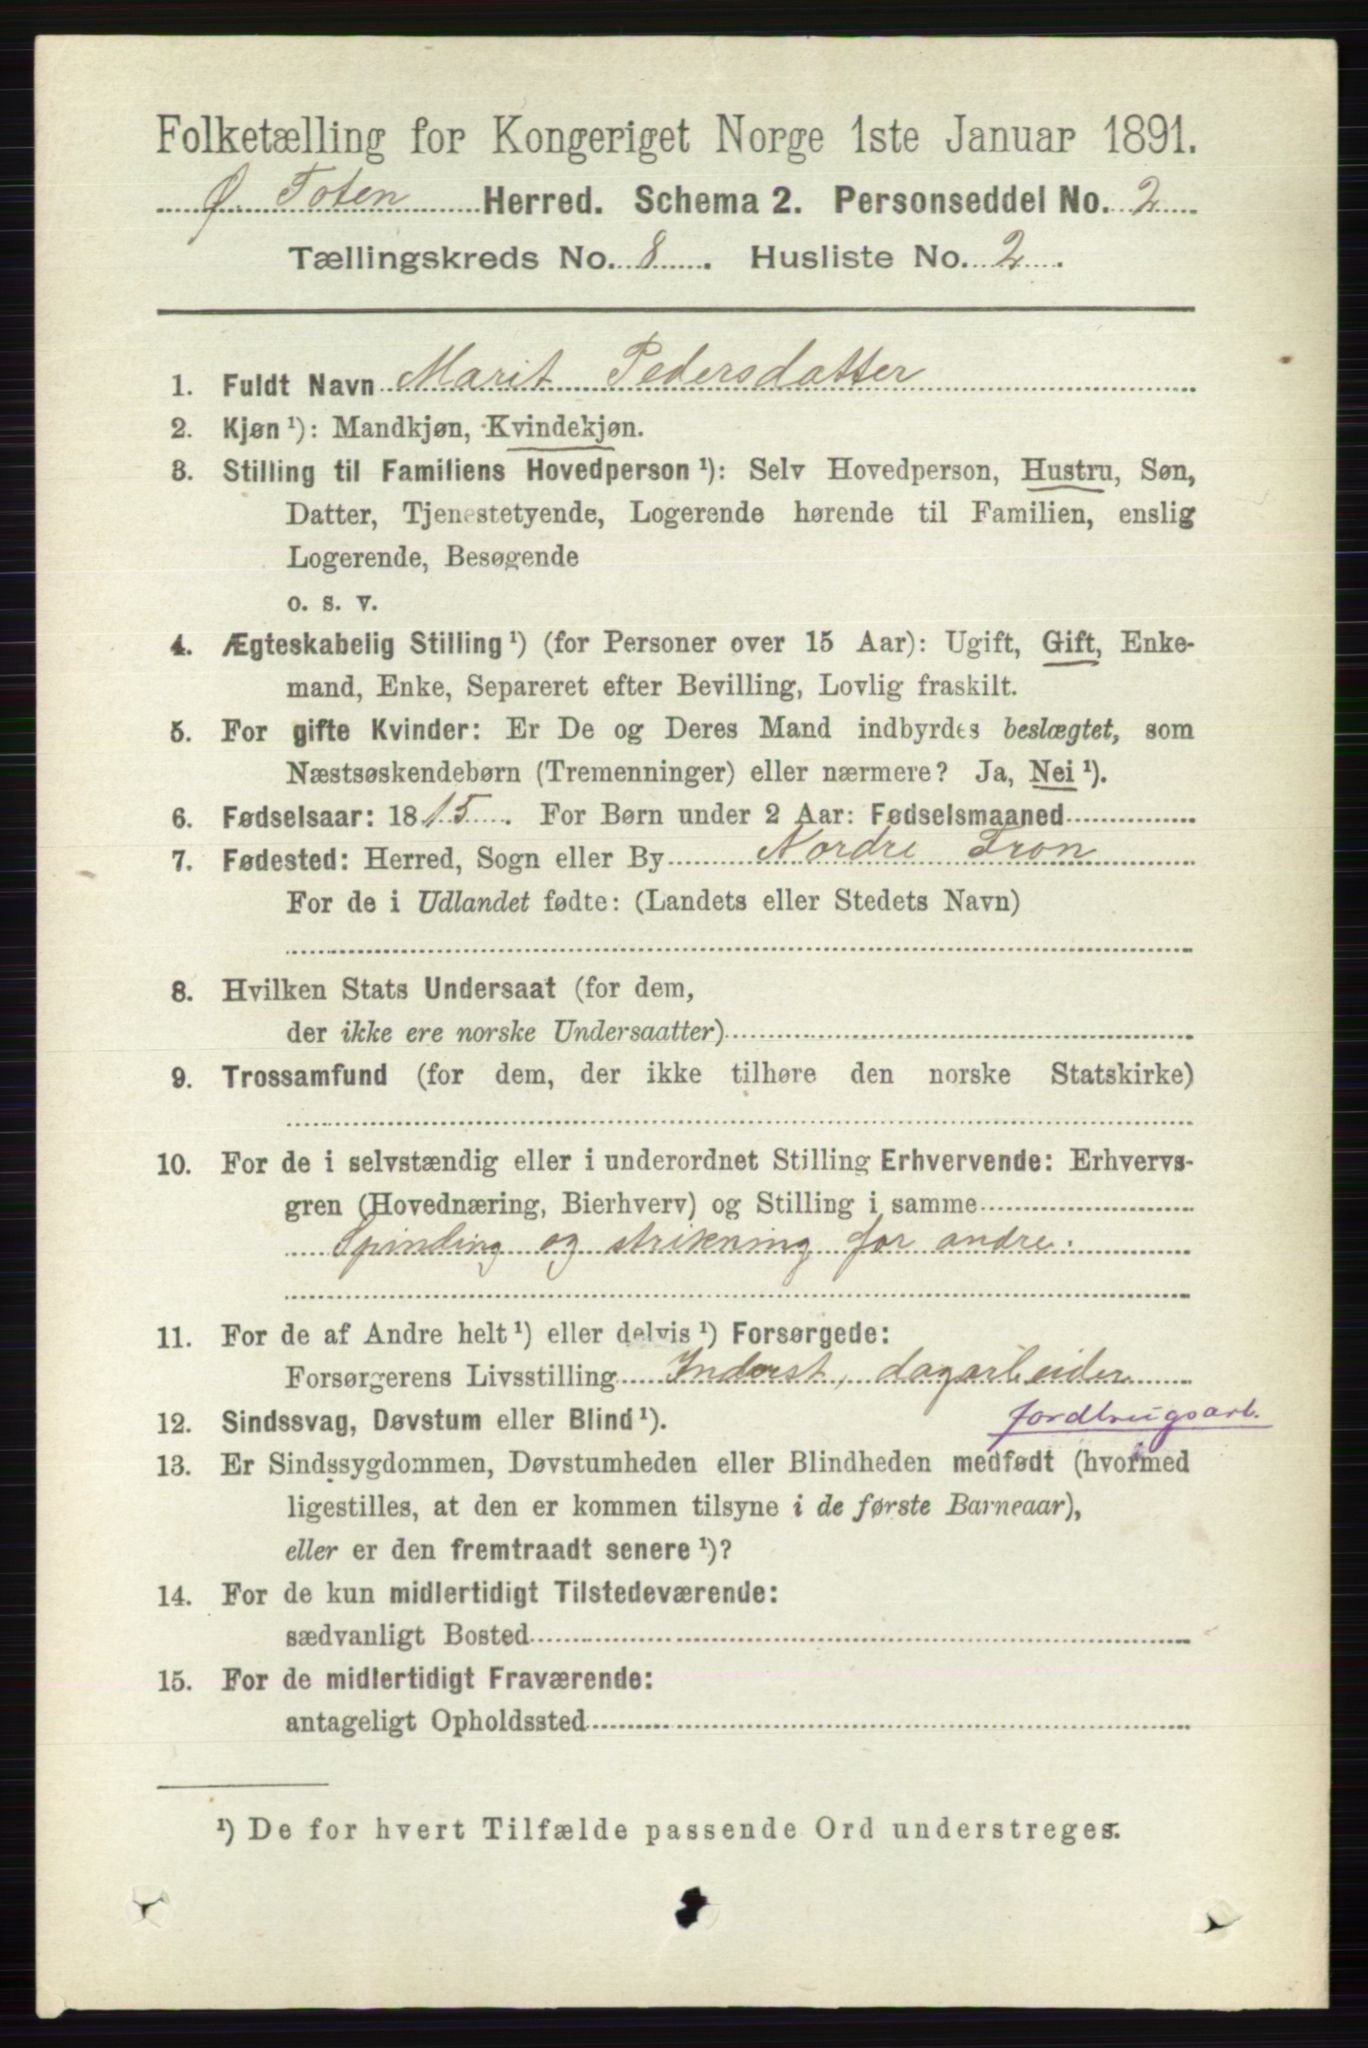 Folketælling for Kongeriget Norge 1ste Januar 1891.
Ø. Toten Herred. Schema 2. Personseddel No. 2
Tællingskreds No. 8. Husliste No. 2.
1. Fuldt Navn Marit Pedersdatter
2. Kjøn ¹): Mandkjøn, Kvindekjøn.
3. Stilling til Familiens Hovedperson ¹): Selv Hovedperson, Hustru, Søn,
Datter, Tjenestetyende, Logerende hørende til Familien, enslig
Logerende, Besøgende
o. s. v.
4. Ægteskabelig Stilling ¹) (for Personer over 15 Aar): Ugift, Gift, Enke-
mand, Enke, Separeret efter Bevilling, Lovlig fraskilt.
5. For gifte Kvinder: Er De og Deres Mand indbyrdes beslægtet, som
Næstsøskendebørn (Tremenninger) eller nærmere? Ja, Nei ¹).
6. Fødselsaar: 1815. For Børn under 2 Aar: Fødselsmaaned
7. Fødested: Herred, Sogn eller By Nordre Fron
For de i Udlandet fødte: (Landets eller Stedets Navn)
8. Hvilken Stats Undersaat (for dem,
der ikke ere norske Undersaatter)
9. Trossamfund (for dem, der ikke tilhøre den norske Statskirke)
10. For de i selvstændig eller i underordnet Stilling Erhvervende: Erhvervs-
gren (Hovednæring, Bierhverv) og Stilling i samme
Spinding og strikning for andre.
11. For de af Andre helt ¹) eller delvis ¹) Forsørgede:
Forsørgerens Livsstilling Inderst, dagarbeider
12. Sindssvag, Døvstum eller Blind ¹). jordbrugsarb.
13. Er Sindssygdommen, Døvstumheden eller Blindheden medfødt (hvormed
ligestilles, at den er kommen tilsyne i de første Barneaar),
eller er den fremtraadt senere ¹)?
14. For de kun midlertidigt Tilstedeværende:
sædvanligt Bosted
15. For de midlertidigt Fraværende:
antageligt Opholdssted
¹) De for hvert Tilfælde passende Ord understreges.